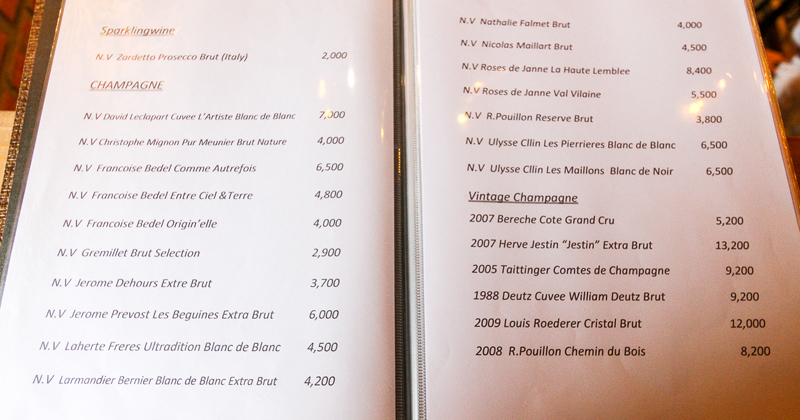 Sparklingwine
N.V Zardetto Prosecco Brut (Italy) 2,000
CHAMPAGNE
N.V David Leclapart Cuvee L'Artiste Blanc de Blanc 7,000
N.V Christophe Mignon Pur Meunier Brut Nature 4,000
N.V Francoise Bedel Comme Autrefois 6,500
N.V Francoise Bedel Entre Ciel &Terre 4,800
N.V Francoise Bedel Origin'elle 4,000
N.V Gremillet Brut Selection 2,900
N.V Jerome Dehours Extre Brut 3,700
N.V Jerome Prevost Les Beguines Extra Brut 6,000
N.V Laherte Freres Ultradition Blanc de Blanc 4,500
N.V Larmandier Bernier Blanc de Blanc Extra Brut 4,200
N.V Nathalie Falmet Brut 4,000
N.V Nicolas Maillart Brut 4,500
N.V Roses de Janne La Haute Lemblee 8,400
N.V Roses de Janne Val Vilaine 5,500
N.V R.Pouillon Reserve Brut 3,800
N.V Ulysse Cllin Les Pierrieres Blanc de Blanc 6,500
N.V Ulysse Cllin Les Maillons Blanc de Noir 6,500
Vintage Champagne
2007 Bereche Cote Grand Cru 5,200
2007 Herve Jestin "Jestin" Extra Brut 13,200
2005 Taittinger Comtes de Champagne 9,200
1988 Deutz Cuvee William Deutz Brut 9,200
2009 Louis Roederer Cristal Brut 12,000
2008 R.Pouillon Chemin du Bois 8,200